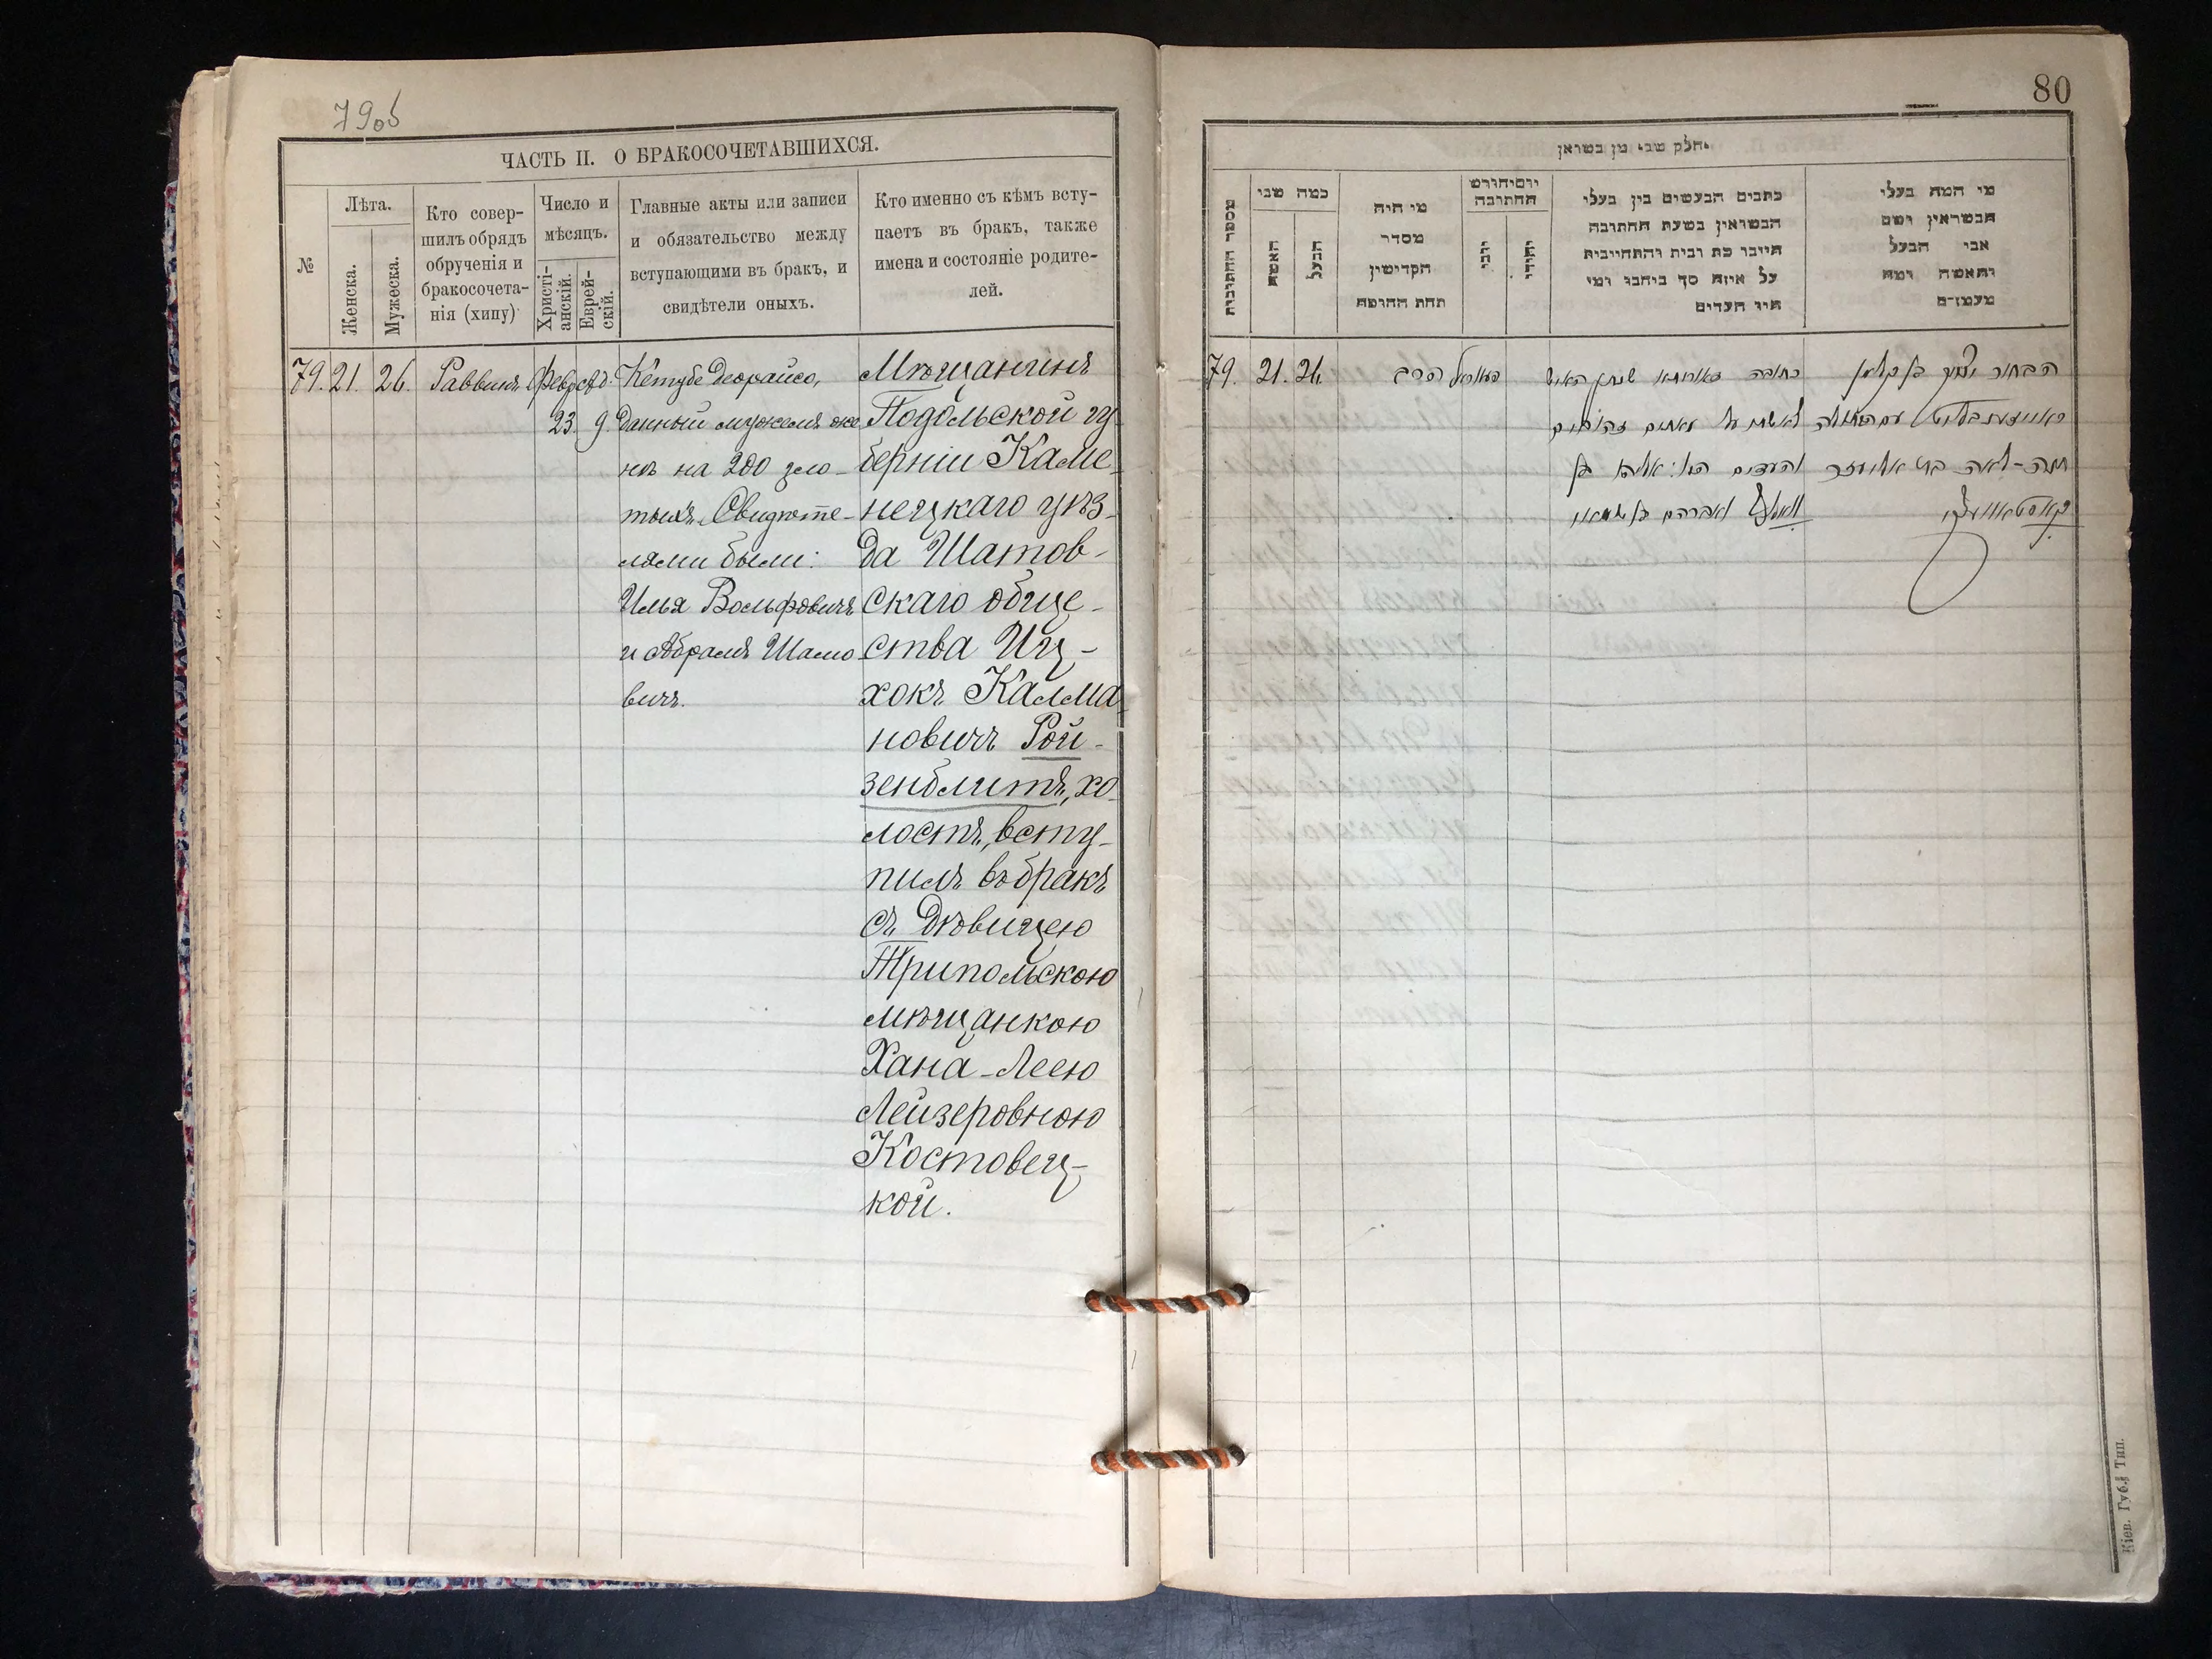 79об
ЧАСТЬ II. О БРАКОСОЧЕТАВШИХСЯ.
№
Лѣта.
Женска.
Мужеска.
Кто совер-
шилъ обрядъ
обрученія и
бракосочета-
нія (хипу)
Число и
мѣсяцъ.
Христі-
анскій.
Еврей-
скій.
Главные акты или записи
и обязательство между
вступающими въ бракъ, и
свидѣтели оныхъ.
Кто именно съ кѣмъ всту-
паетъ въ бракъ, также
имена и состояніе родите-
лей.
79. 21. 26. Раввинъ
23. 9.
Кетубе Деорайсо,
данный мужемъ же
нѣ на 200 зло-
тыхъ. Свидѣте-
лями были:
Илья Вольфовичъ
и Абрамъ Шамо
вичъ.
Мѣщанинъ
Подольской гу
берніи Каме
нецкаго уѣз-
да Шатов-
скаго обще-
ства Иц-
хокъ Калма
новичъ Рой-
зенблитъ, хо
лостъ, всту-
пилъ въ бракъ
съ дѣвицею
Трипольскою
мѣщанкою
Хана-Леею
Лейзеровною
Костовец-
кой.
80
חלק שני מן נשואין
מספר החתונות
כמה שני
האשה
הבעל
מי היה
מסדר
הקדישין
תחת החופה
יום וחודש
החתונה
נוצרי
יהודי
כתבים הנעשים בין בעלי
הנשואין בשעת החתונה
היינו כת ובית והתחייבות
על איזה סך ביחבו ומי
היו העדים
מי המה בעלי
הנשואין ושם
אבי הבעל
והאשה ומה
מעמדם
79. 21. 26.
הרב
כתובה דאורייתא שנתן האיש
לאשתו על מאתים זהובים
והעדים הי': אליהו בן
וואלף ואברהם בן
הבחור יצחק בן קלמן
רויזענבליט עם הבתולה
חנה-לאה בת אליעזר
Кіев. Губ. Тип.